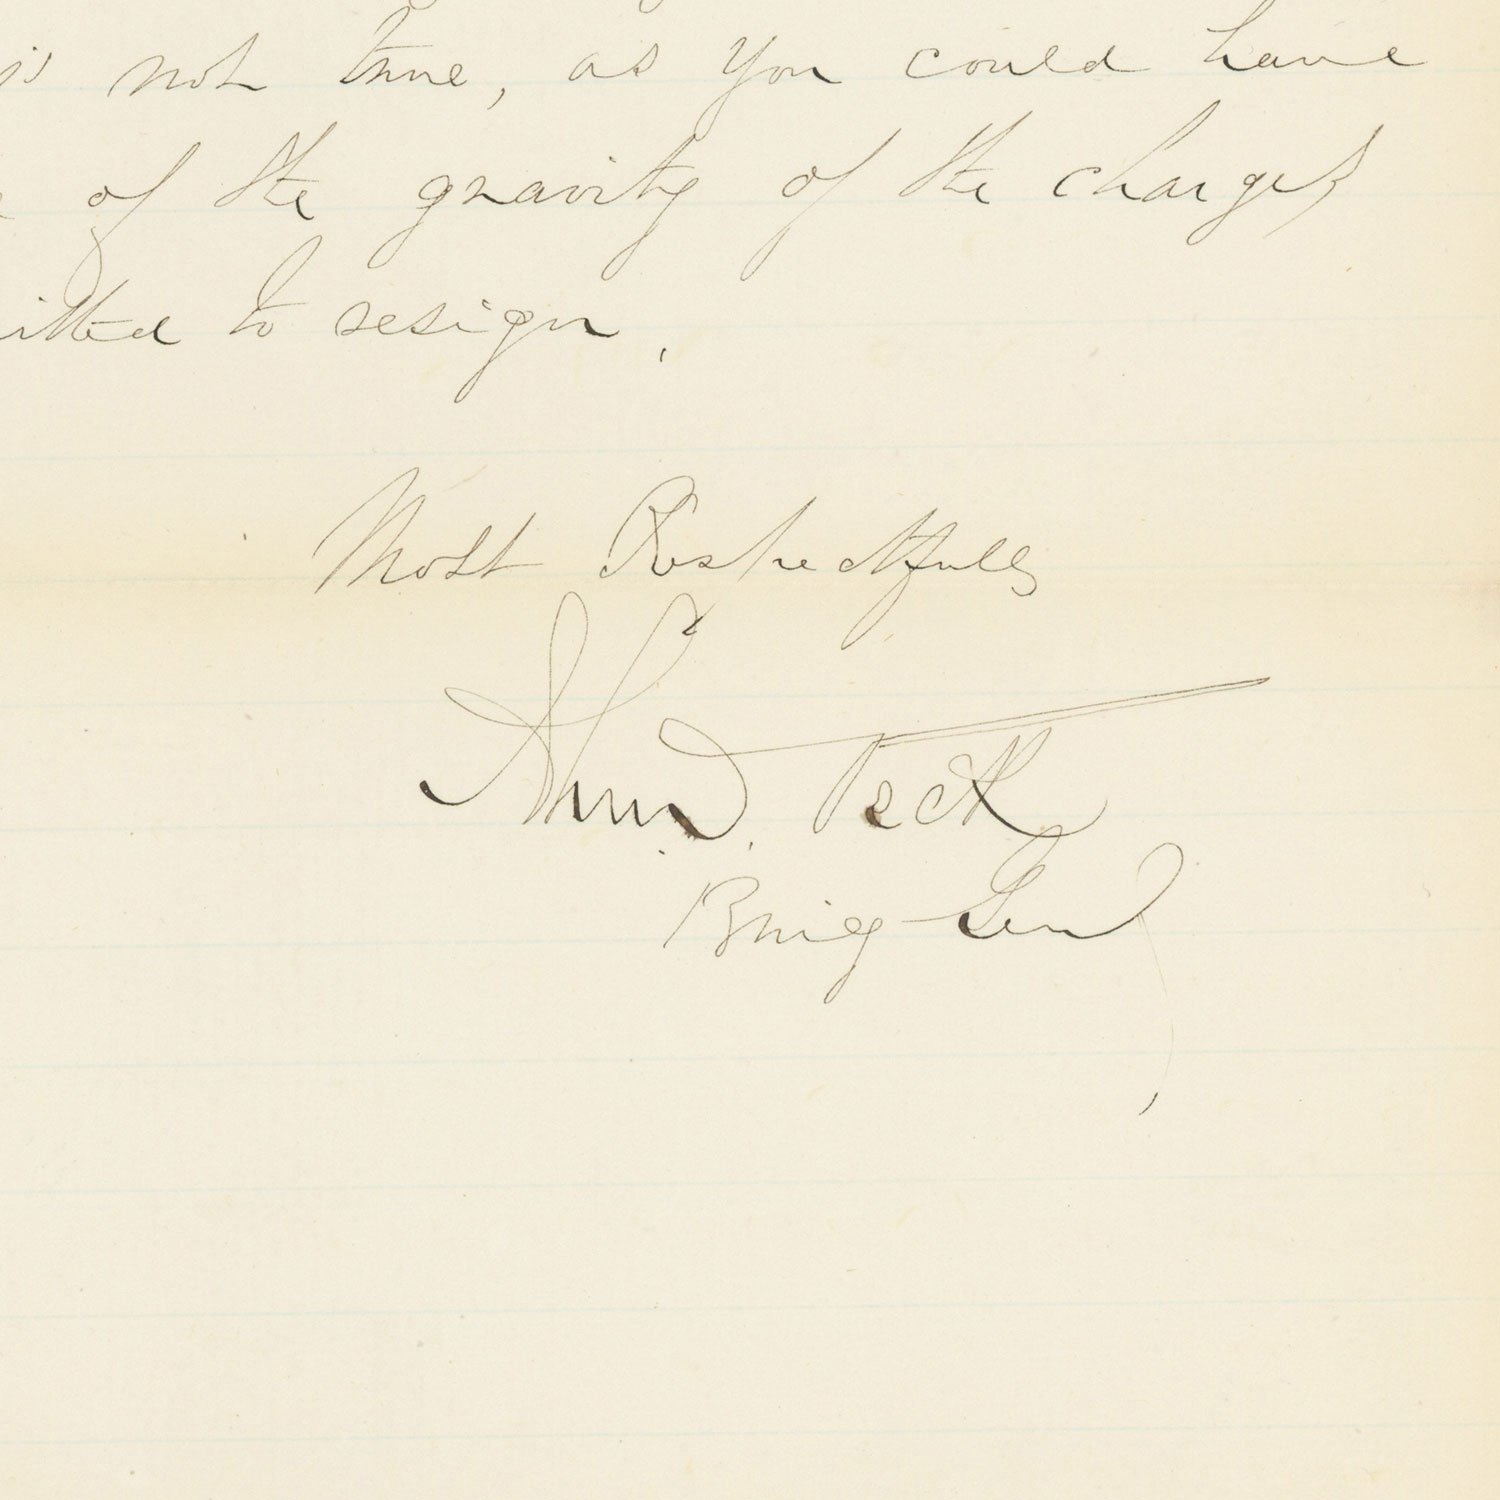 is not true, as you could have
of the gravity of the charges
itted to resign.
Most Respectfully
Peck
Brig Genl